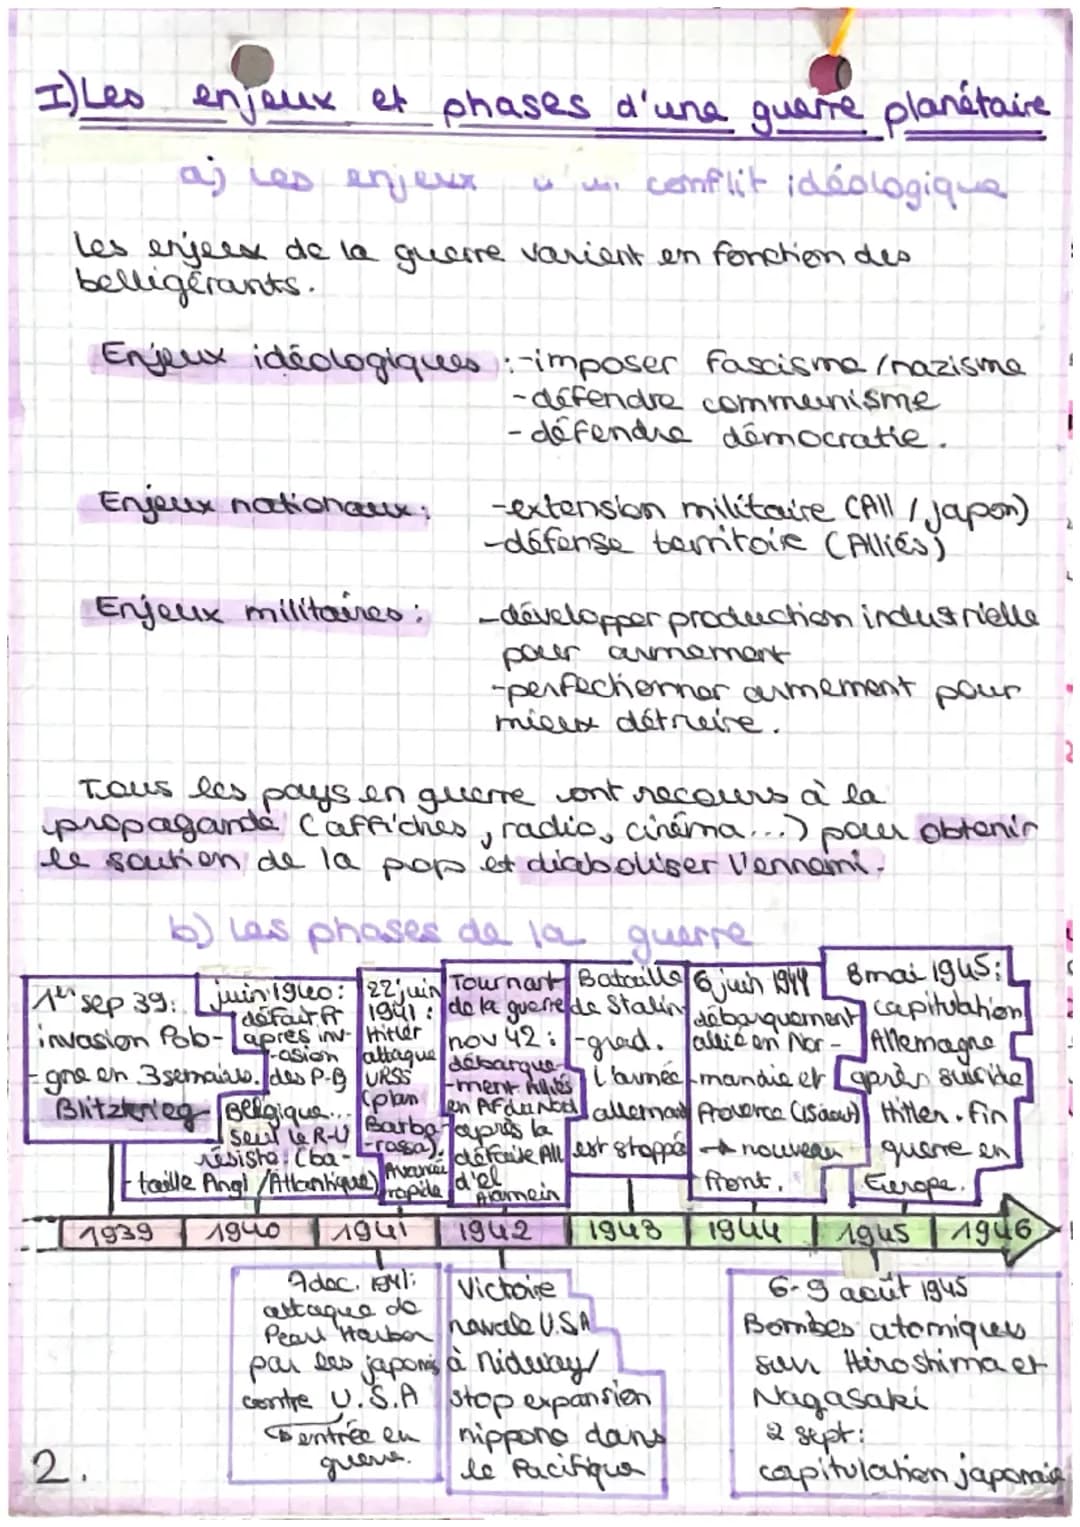 I) Les enjeux et phases d'une guerre planétaire
a) Les enjeux d'un conflit idéologique
Les enjeux de la guerre varient en fonction des
belligérants.
Enjeux idéologiques : -imposer fascisme /nazisme
-défendre communisme
-défendre démocratie.
Enjeux nationaux : -extension militaire (All / Japon)
-défense territoire (Alliés)
Enjeux militaires : -développer production industrielle
pour armement
-perfectionner armement pour
mieux détruire.
Tous les pays en guerre ont recours à la
propagande (affiches, radio, cinéma...) pour obtenir
le soutien de la pop et diaboliser l'ennemi.
b) Les phases de la guerre
1er sep 39:
invasion Polo-
gne en 3 semaines.
Blitzkrieg
juin 1940:
défait Fr
après inv-
asion
des P-B
Belgique...
Seul le R-U
résiste. (ba-
taille Angl /Atlantique)
22 juin
1941 :
Hitler
attaque
URSS
(plan
Barba-
rossa).
Avancée
rapide
Tournant
de la guerre
nov 42 :
débarque-
ment Alliés
en Af du Nord
après la
défaite All
d'el
Alamein
Bataille
de Stalin-
grad.
L'armée
allemande
est stoppée
6 juin 1944
débarquement
allié en Nor-
mandie et
Provence (15 août)
→ nouveau
front.
8 mai 1945:
capitulation
Allemagne
après suicide
Hitler. Fin
guerre en
Europe.
1939 1940 1941 1942 1943 1944 1945 1946
7 dec. 1941:
attaque de
Pearl Harbor
par les japonais
contre U.S.A
↳ entrée en
guerre.
Victoire
navale U.S.A
à Midway/
stop expansion
nippone dans
le Pacifique
6-9 août 1945
Bombes atomiques
sur Hiroshima et
Nagasaki
2 sept:
capitulation japonaise
2.